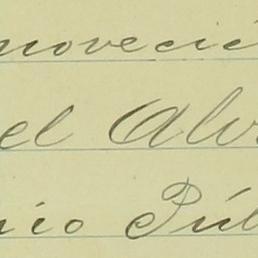 novecie
el Alv
io Púb